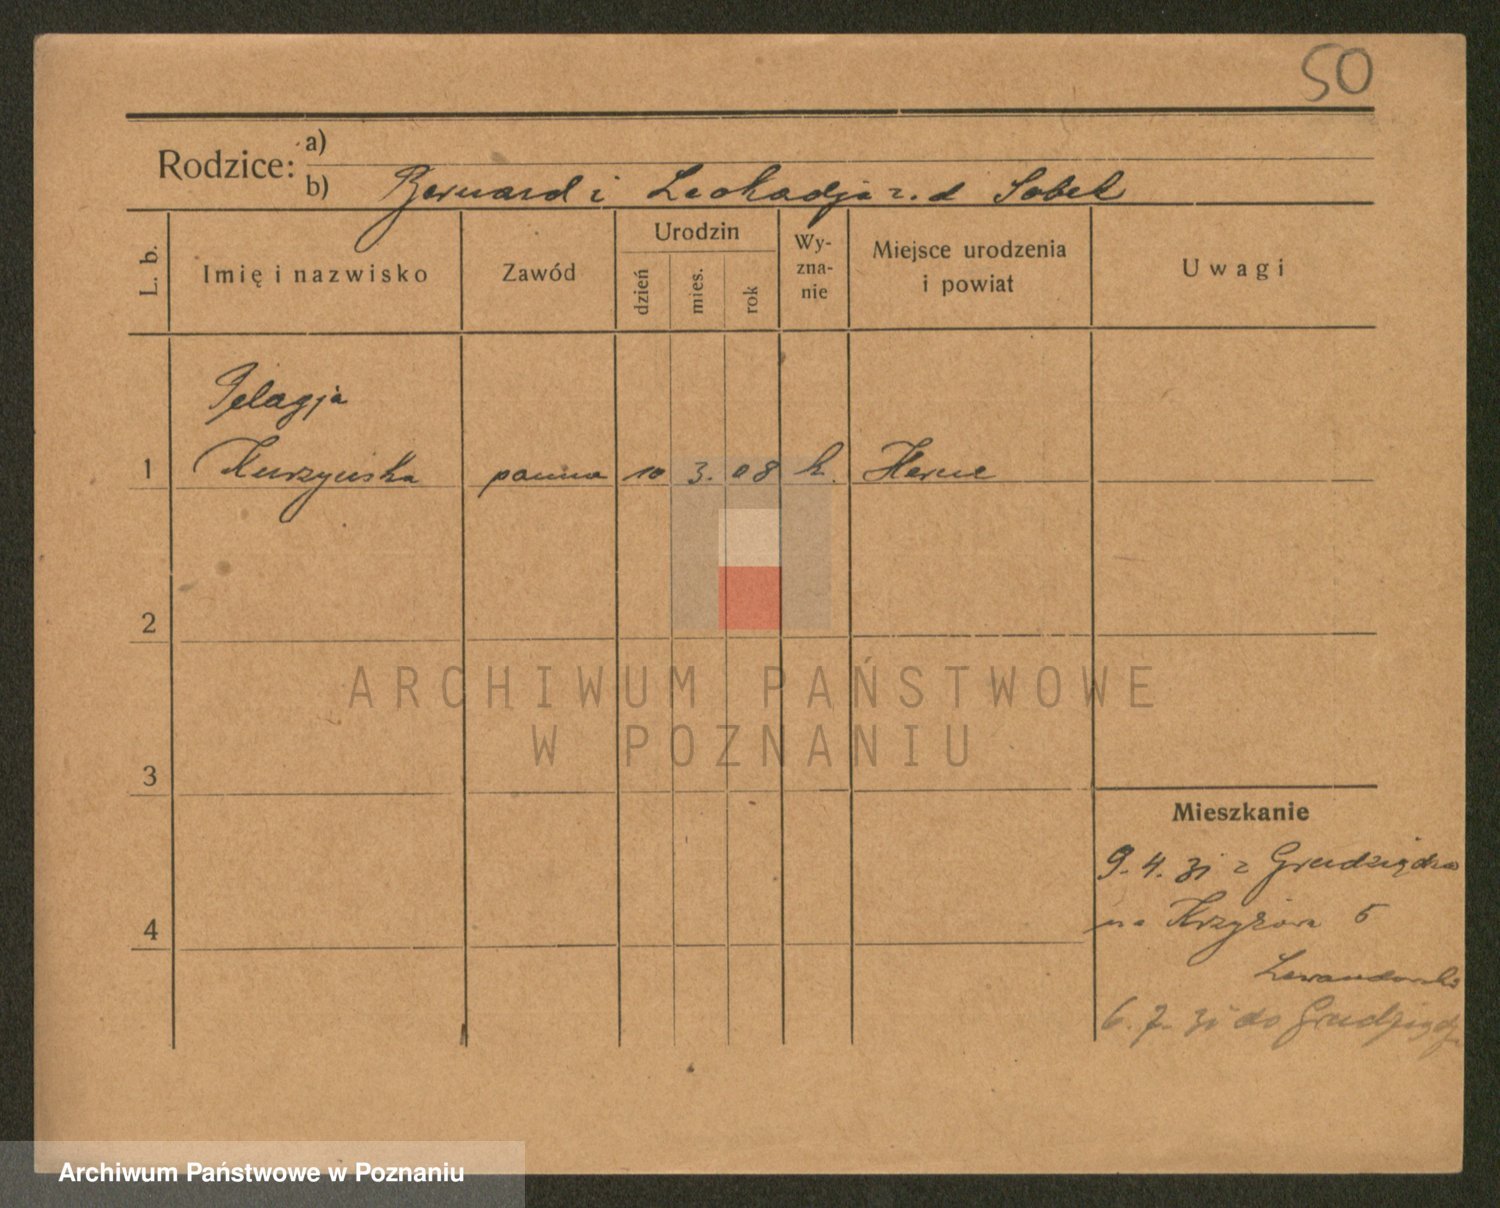 50
Rodzice: a)
b) Bernard i Leokadja z. d Sobek
L. b. Imię i nazwisko Zawód Urodzin dzień mies. rok Wyzna-nie Miejsce urodzenia i powiat Uwagi
Pelagja
1 Kurzyńska panna 10 3. 08 k. Herne
2
ARCHIWUM PAŃSTWOWE
W POZNANIU
3
Mieszkanie
9. 4. 31 z Grudziądza
4 na Krzyżowa 5
Lewandowska
6. 7. 31 do Grudziądz
Archiwum Państwowe w Poznaniu